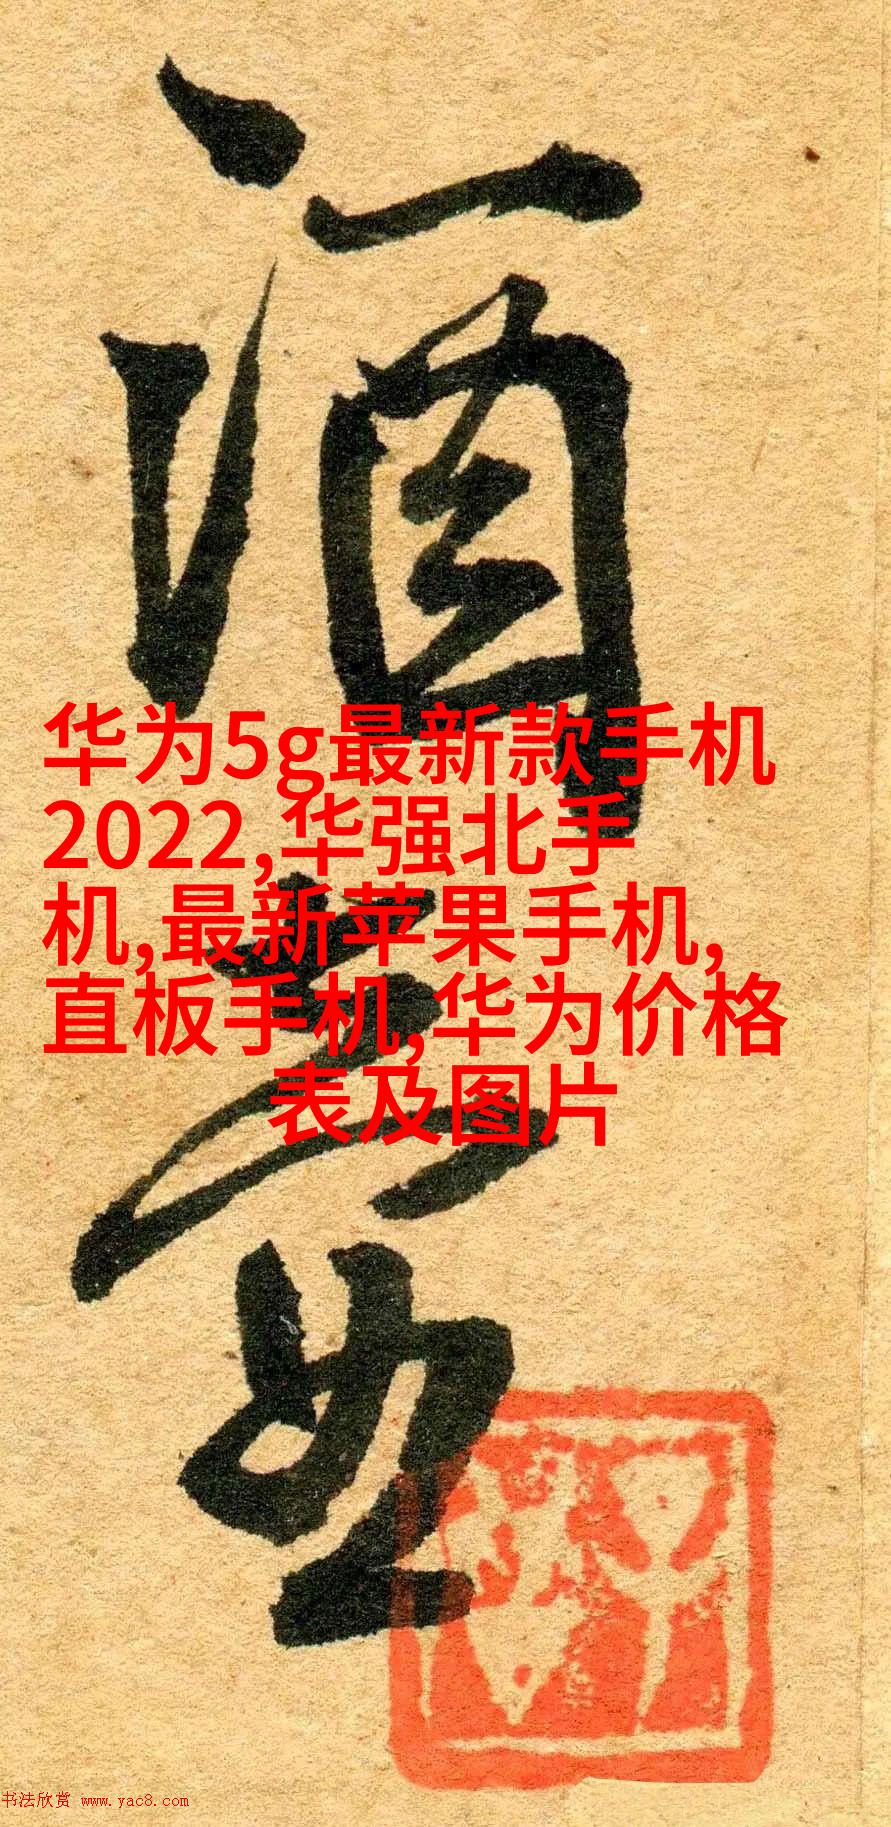 酒
华为5g最新款手机
2022,华强北手
机,最新苹果手机,
直板手机,华为价格
表及图片
书法欣赏 www.yac8.com